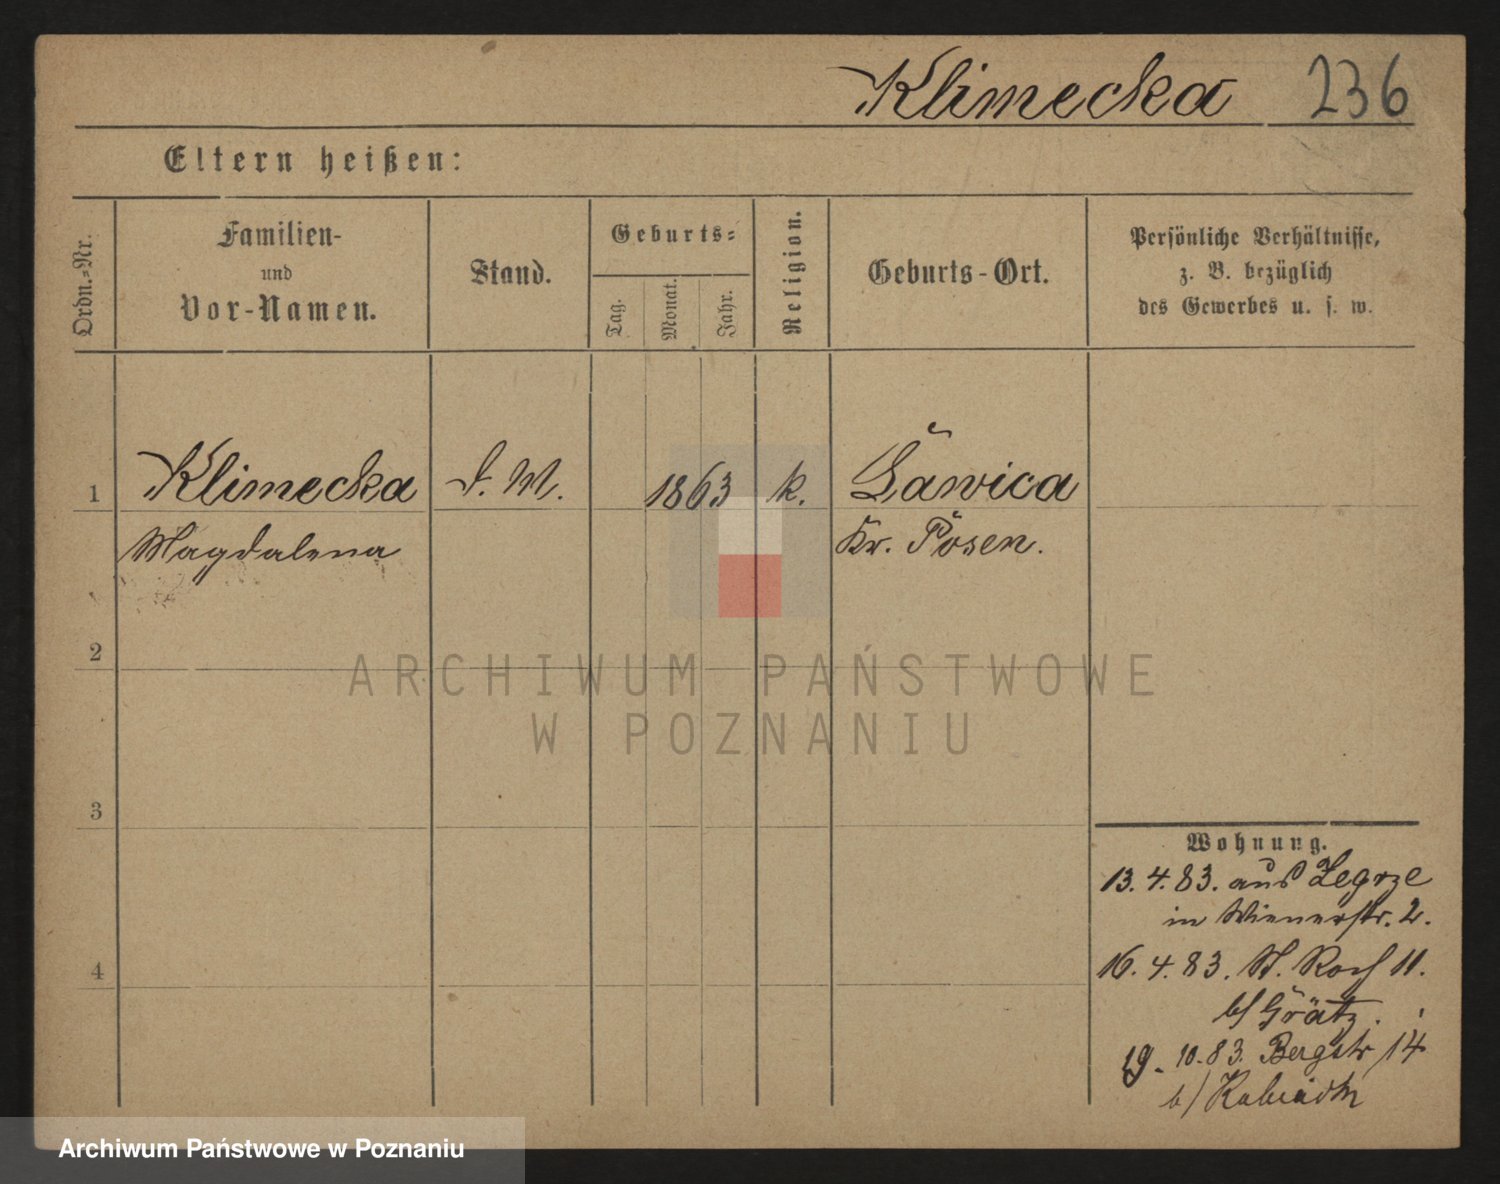 Klimecka 236
Eltern heißen:
Ordn.-Nr.
Familien-
und
Vor-Namen.
Stand.
Geburts-
Tag.
Monat.
Jahr.
Religion.
Geburts-Ort.
Persönliche Verhältnisse,
z. B. bezüglich
des Gewerbes u. s. w.
1 Klimecka d. M. 1863 k. Ławica
Magdalena Kr. Posen.
2
3
4
Wohnung.
13. 4. 83. aus Zegrze
in Wienerstr. 2.
16. 4. 83. St. Roch 11.
b/ Grätz.
19. 10. 83. Bergstr 14
b/
ARCHIWUM PAŃSTWOWE
W POZNANIU
Archiwum Państwowe w Poznaniu